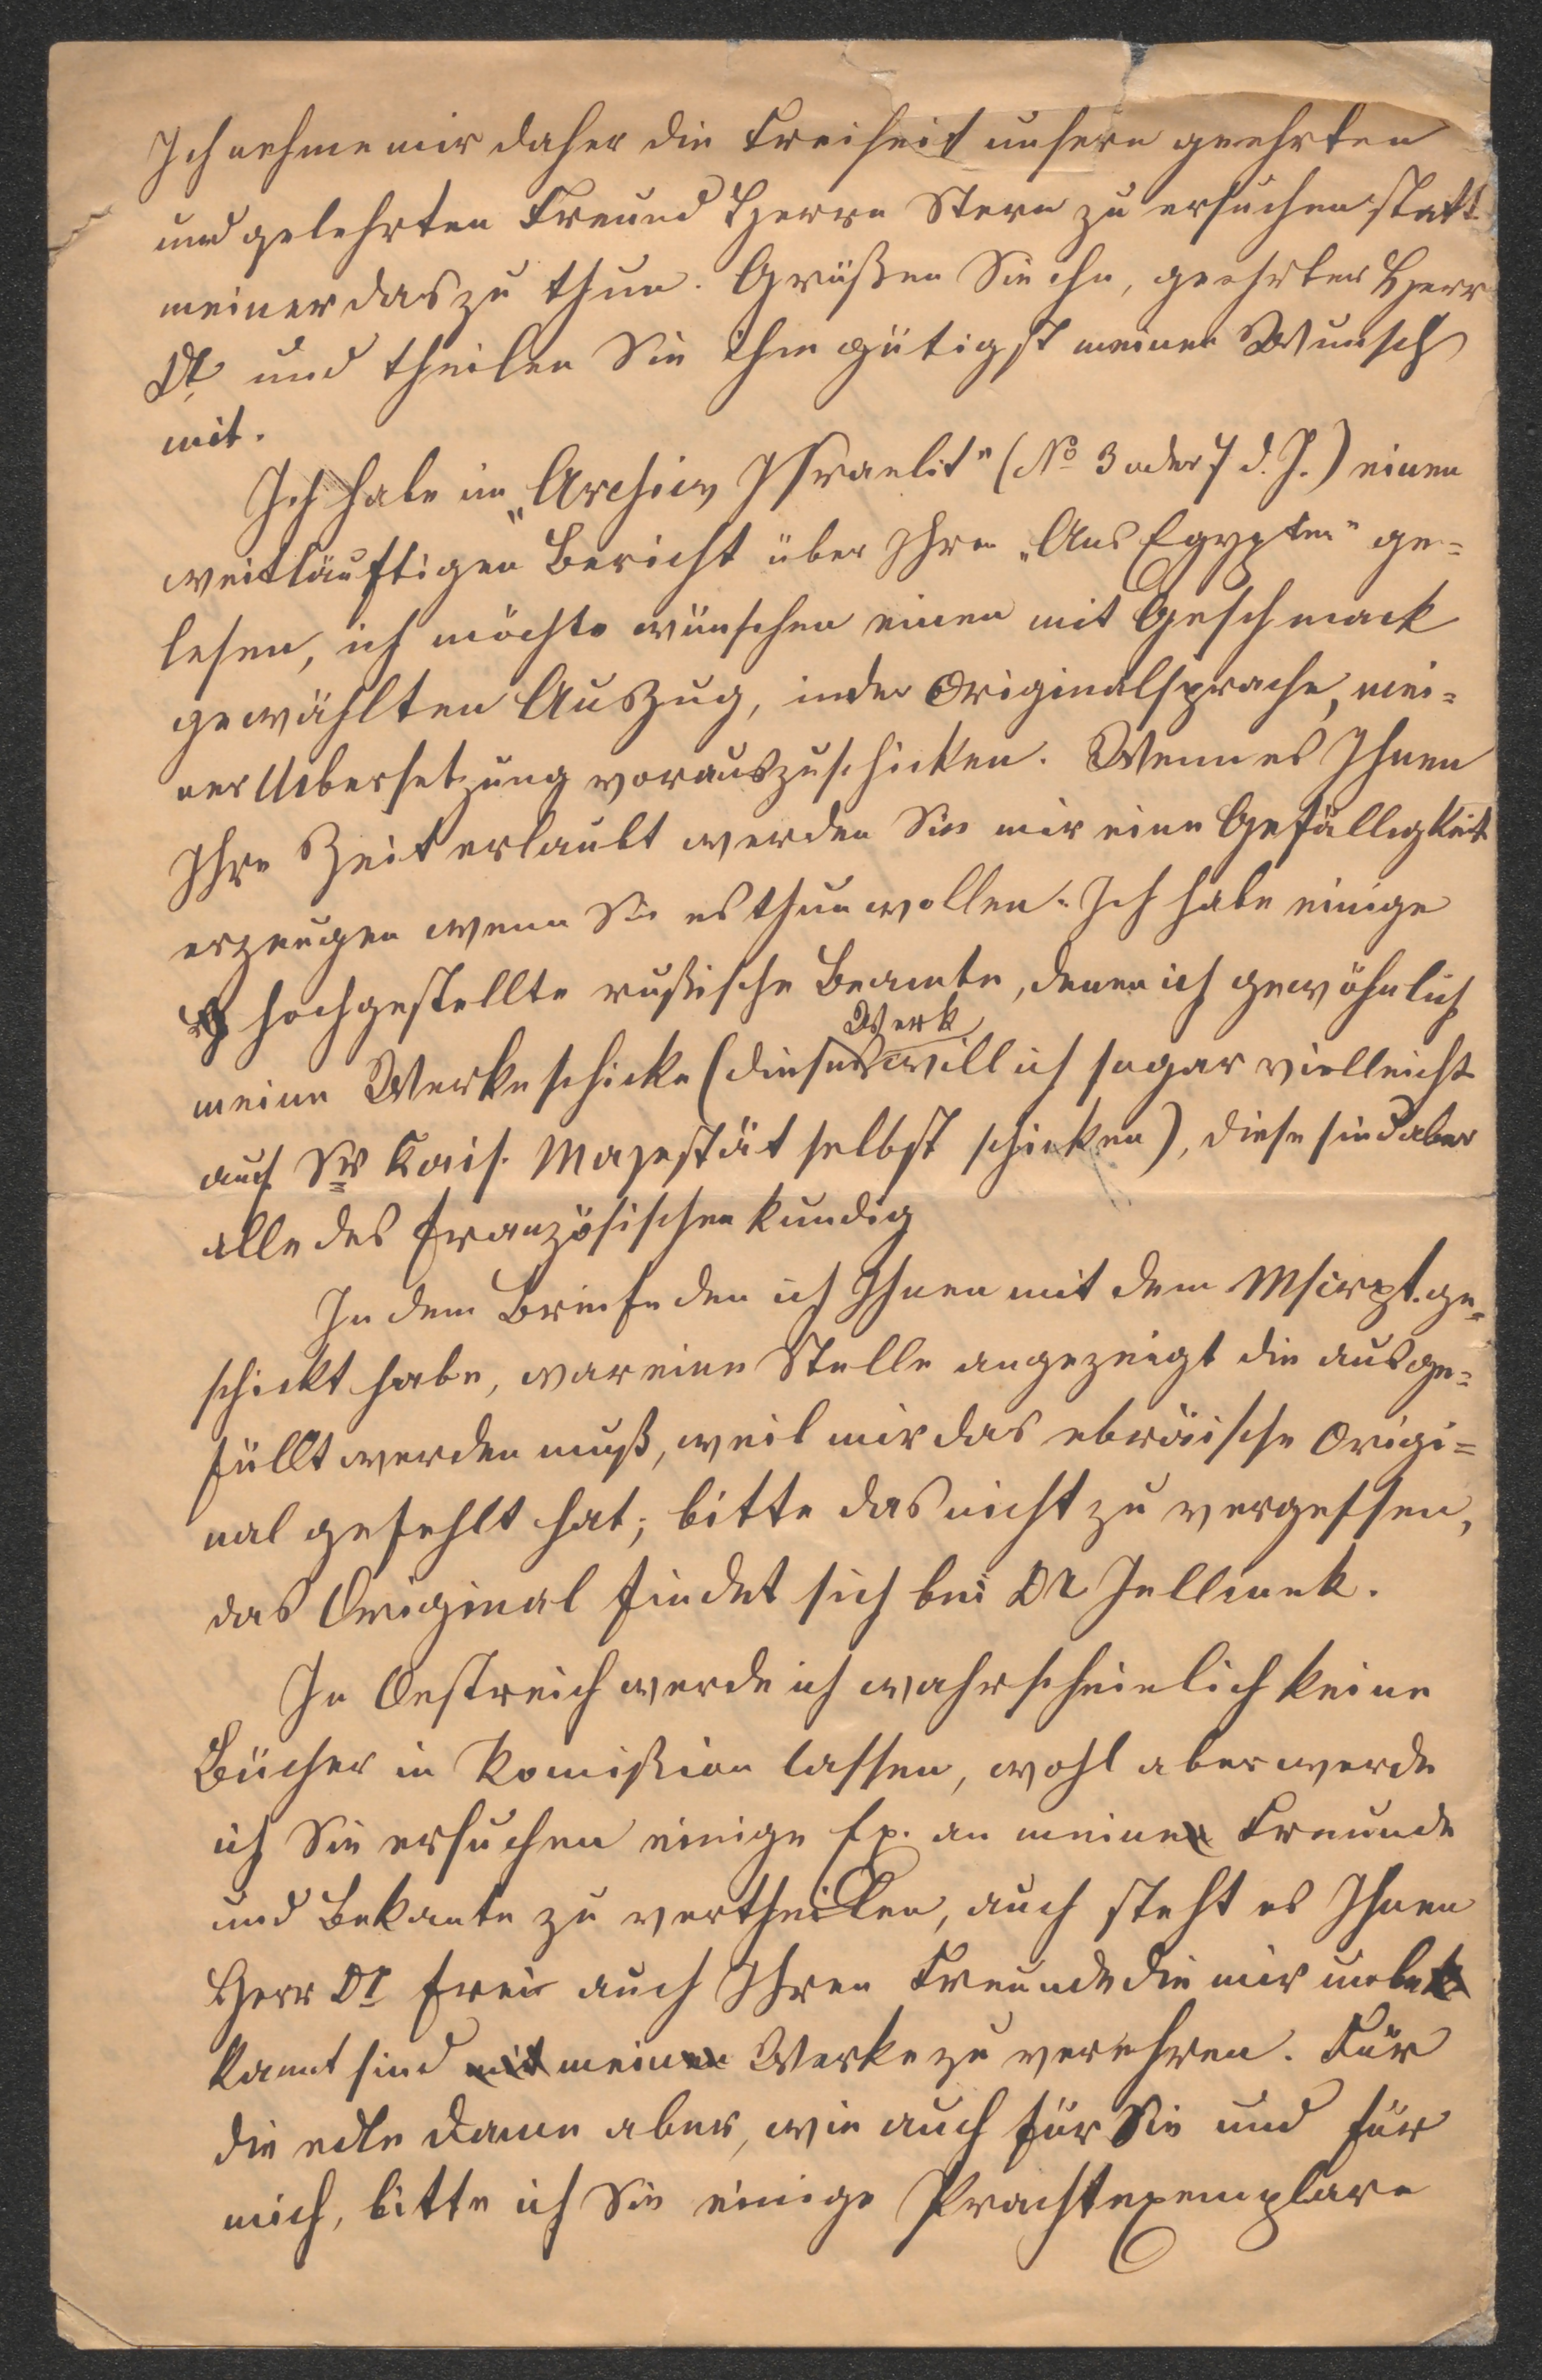 Ich nehme mir daher die Freiheit unsern geehrten
und gelehrten Freund Herrn Stern zu ersuchen statt
meiner das zu thun. Grüßen Sie ihn, geehrter Herr
Dr und theilen Sie ihm gütigst meinen Wunsch
mit.
Ich habe im „Archiv Israelit" (No 3 oder 4 d. J.) einen
weitläuftigen Bericht über Ihre „Aus Egypten" ge=
lesen, ich möchte wünschen einen mit Geschmack
gewählten Auszug, in der Originalsprache, mei=
ner Uibersetzung vorauszuschicken. Wenn es Ihnen
Ihre Zeit erlaubt werden Sie mir eine Gefälligkeit
erzeugen wenn Sie es thun wollen. Ich habe einige
hochgestellte rußische Beamte, denen ich gewöhnlich
meine Werke schicke (dieses Werk will ich sogar vielleicht
auch Sr Kais. Majestät selbst schicken), diese sind aber
alle des französischen kundig
In dem Briefe den ich Ihnen mit dem Mscrpt. ge=
schickt habe, war eine Stelle angezeigt die ausge=
füllt werden muß, weil mir das ebräische Origi=
nal gefehlt hat; bitte das nicht zu vergessen,
das Original findet sich bei Dr Jellinek.
In Oestreich werde ich wahrscheinlich keine
Bücher in Komißion lassen, wohl aber werde
ich Sie ersuchen einige Ex. an meine Freunde
und Bekante zu vertheilen, auch steht es Ihnen
Herr Dr frei auch Ihren Freunde die mir unbe
kannt sind mit meinen Werke zu verehren. Für
die edle Dame aber, wie auch für Sie und für
mich, bitte ich Sie einige Prachtexemplare